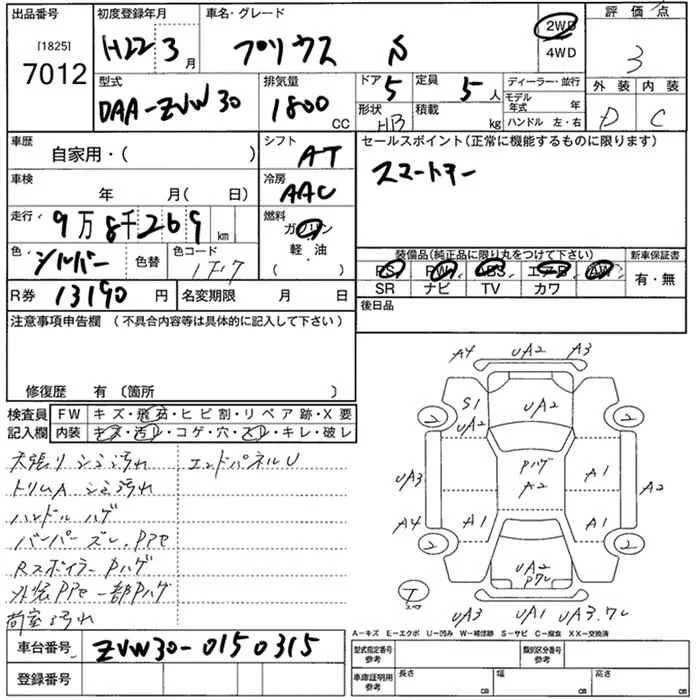 出品番号 初度登録年月 車名・グレード 評価点
[1825]
7012
H22 3月 プリウス S
2WD
4WD
3
型式 排気量 ドア 定員 ディーラー・並行 外装 内装
DAA-ZVW30 1800 CC 5 5人
モデル年式 年
形状 HB 積載 kg ハンドル 左・右
D C
車歴 シフト セールスポイント(正常に機能するものに限ります)
自家用・( ) AT
スマートキー
車検 冷房
年 月( 日) AAC
走行 燃料
9万8千269 km ガソリン
軽・油
( )
色 シルバー 色替 色コード 1F7
装備品(純正品に限り丸をつけて下さい) 新車保証書
PS PW ABS エアB AW 有・無
SR ナビ TV カワ
R券 13190円 名変期限 月 日
後日品
注意事項申告欄 (不具合内容等は具体的に記入して下さい)
修復歴 有 〔箇所 〕
検査員 FW キズ・飛石・ヒビ割・リペア跡・X要
記入欄 内装 キズ・汚レ・コゲ・穴・スレ・キレ・破レ
天張りシミ汚れ エンドパネルU
トリムA シミ汚れ
ハンドルハゲ
バーパーズレ、Pアセ
RスポイラーPハゲ
外装Pアセ一部Pハゲ
荷室汚れ
A4 UA2 A3
S1
UA2 UA2
2 2
Pハゲ
A2
UA3 A1 A2
A4 A1 A1
2 2
UA2
UA3 UA1 UA3.
A-キズ E-エクボ U-凹み W-補修跡 S-サビ C-腐食 XX-交換済
車台番号 ZVW30-0150315
登録番号
型式指定番号 参考 類別区分番号 参考
車庫証明用 参考 長さ cm 幅 cm 高さ cm